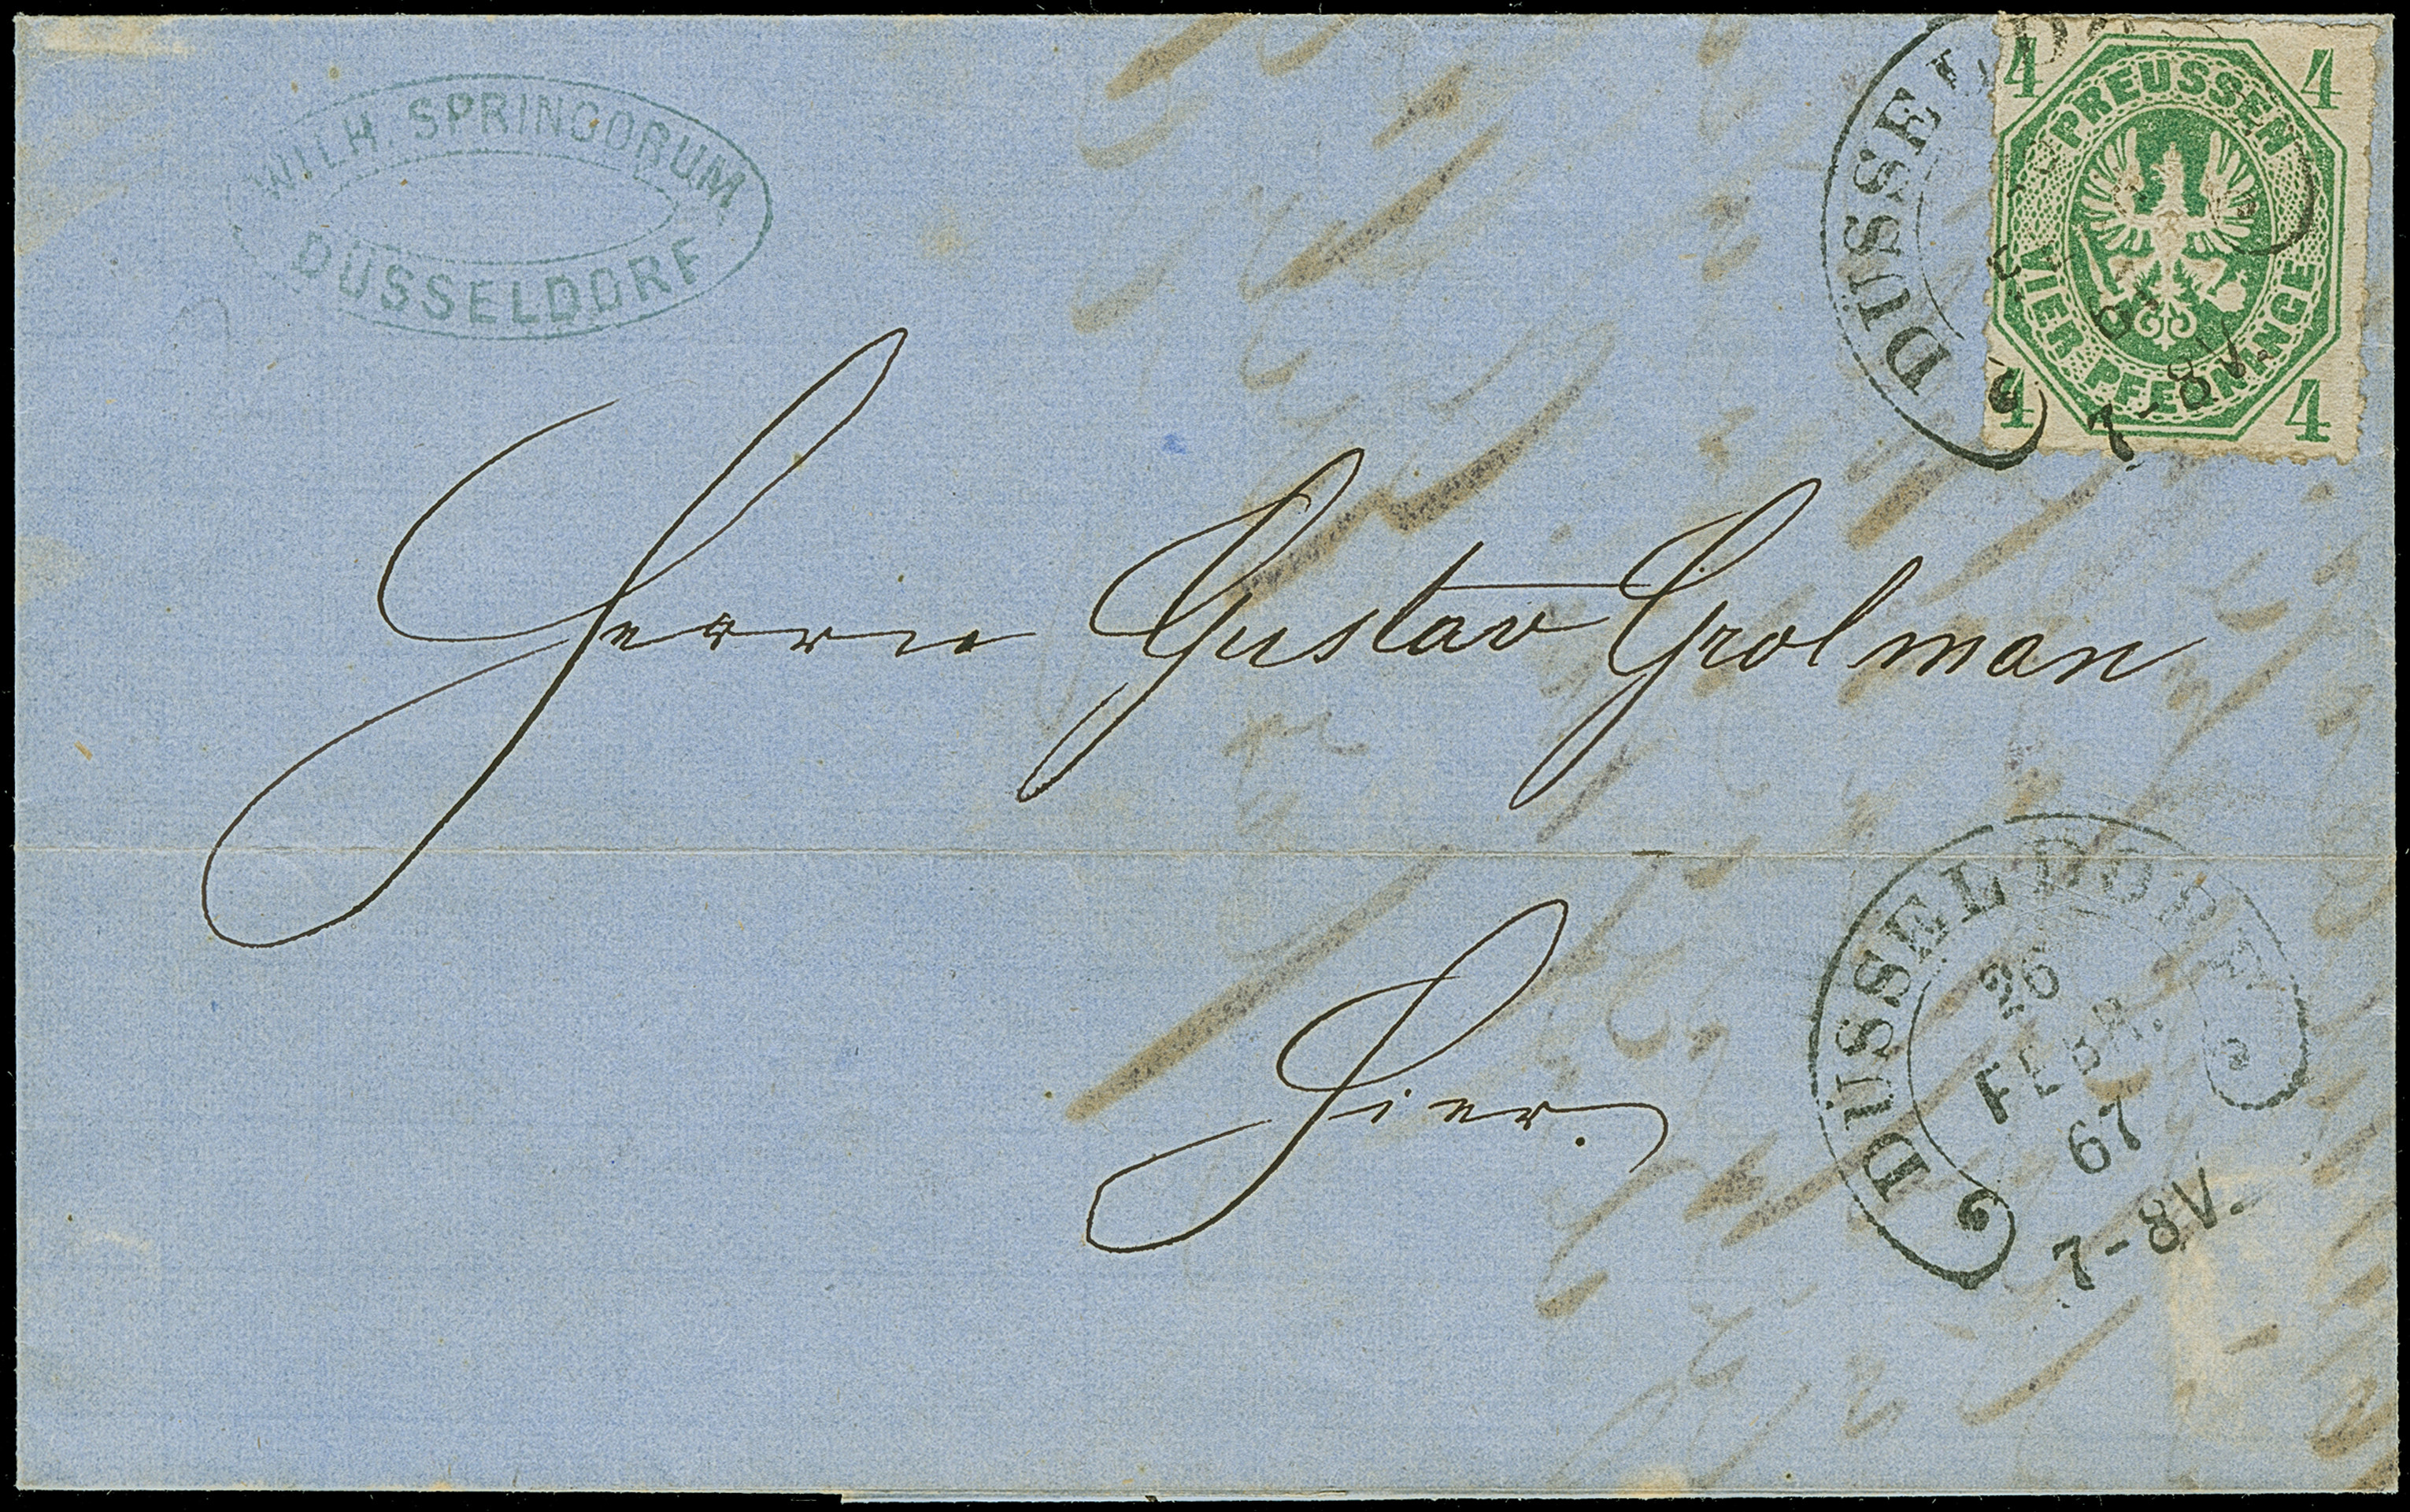 WILH. SPRINGORUM
DÜSSELDORF
DÜSSELDO
4 4
PREUSSEN
VIER PFENNINGE
4 4
7-8V.
Herrn Gustav Grolman
Hier.
DÜSSELDORF
26
FEBR.
67
7-8V.